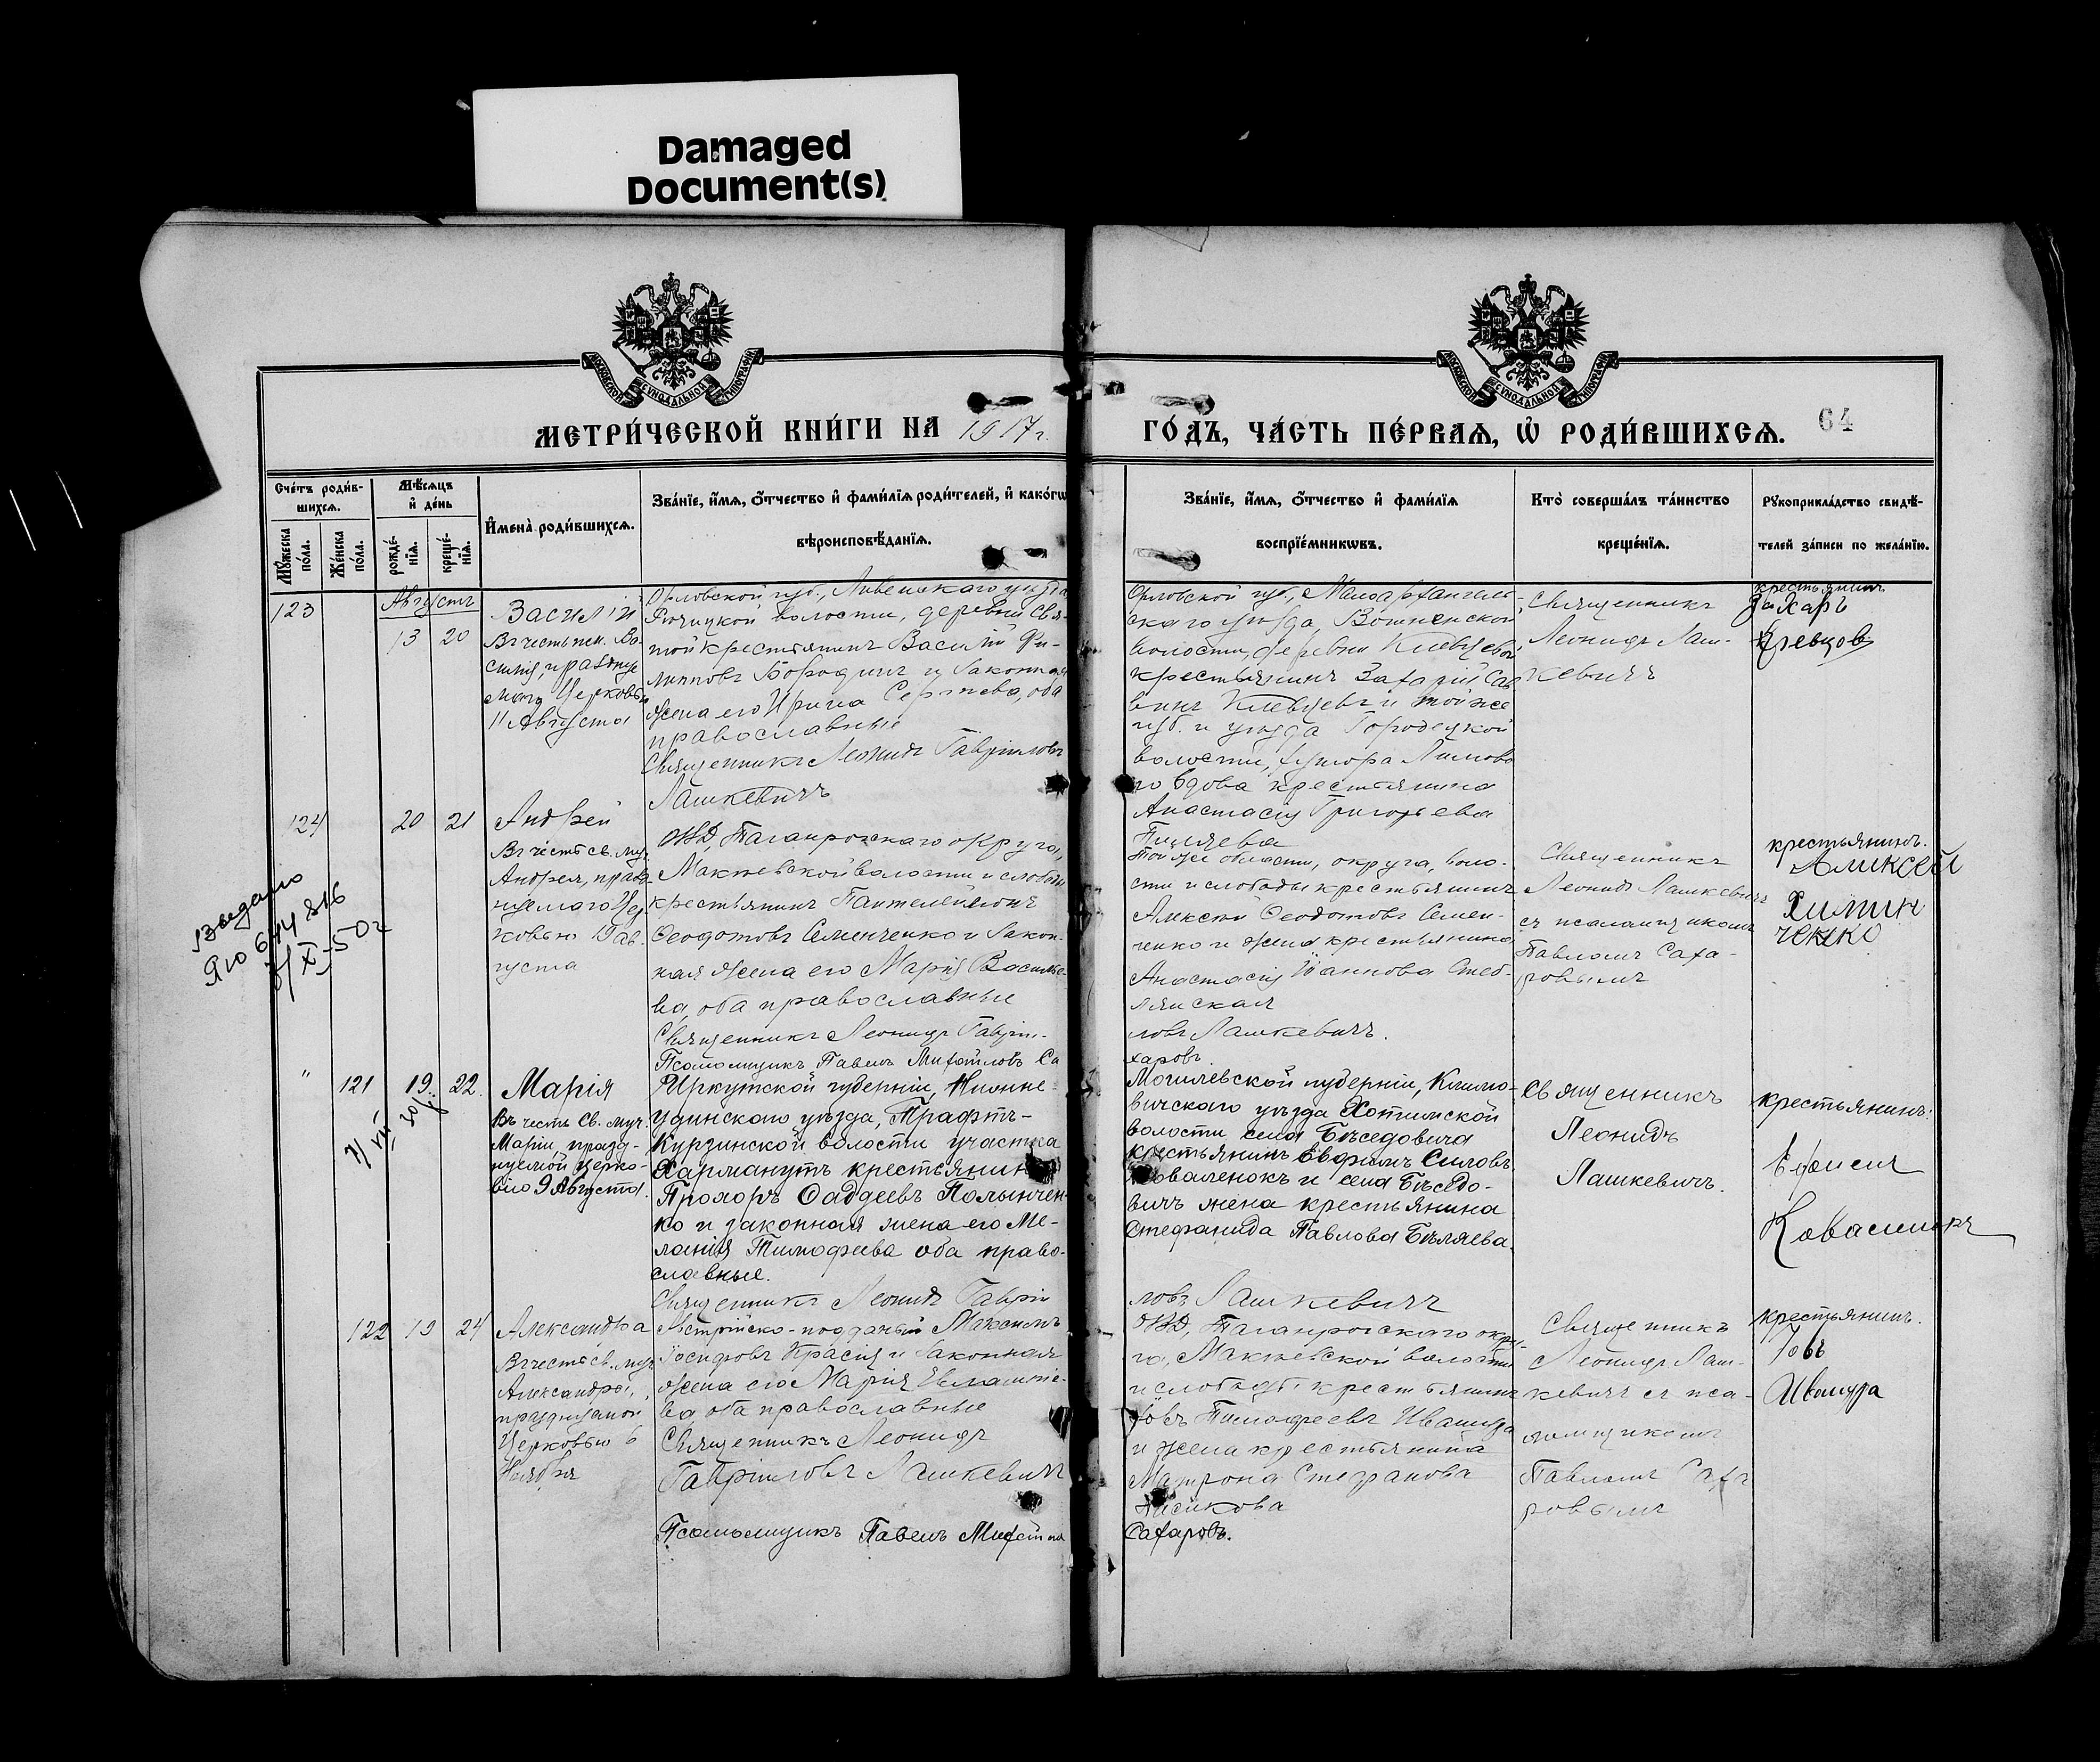 Damaged
Document(s)
МЕТРИЧЕСКОЙ КНИГИ НА 1917 г.
ГОДЪ, ЧАСТЬ ПЕРВАЯ, Ѡ РОДИВШИХСЯ.
64
Счетъ родив-
шихся.
Мужеска пола.
Женска пола.
Мѣсяцъ
и день
рожде-
нія.
креще-
нія.
Имена родившихся.
Званіе, имя, отчество и фамилія родителей, и какогѡ
вѣроисповѣданія.
Званіе, имя, отчество и фамилія
воспріемникѡвъ.
Кто совершалъ таинство
крещенія.
Рукоприкладство свидѣ-
телей записи по желанію.
123
Августъ
13 20
Василій
Въ честь
11 Августа
Орловской губ., Ливенскаго уѣзда
Рѣчицкой волости, деревни Свя-
той крестьянинъ Василій Фи-
липповъ Бородинъ и законная
жена его Ирина Сергѣева, оба
православные
Священникъ Леонидъ Гавріиловъ
Лашкевичъ
Орловской губ., Малоархангель-
скаго уѣзда,
волости, деревни
крестьянинъ Захарій Сав
винъ и той же
губ. и уѣзда Городецкой
волости, хутора
го вдова крестьянина
Анастасія Григорьева
Священникъ
Леонидъ Лаш-
кевичъ
крестьянинъ
Захаръ
124
20 21
Андрей
Въ честь св. муч.
Андрея, празд-
нуемаго Цер-
ковью 19 Ав-
густа
ОВД, Таганрогскаго округа,
Макѣевской волости и слободы
крестьянинъ Пантелеймонъ
Ѳеодотовъ Семенченко и закон-
ная жена его Марія Василье-
ва, оба православные
Священникъ Леонидъ Гавріи-
Псаломщикъ Павелъ Михайловъ Са
Той же области, округа, воло-
сти и слободы крестьянинъ
Алексѣй Ѳеодотовъ Семен-
ченко и жена крестьянина
Анастасія Іоаннова Стеб-
лянская
ловъ Лашкевичъ.
харовъ.
Священникъ
Леонидъ Лашкевичъ
съ псаломщикомъ
Павломъ Саха-
ровымъ
крестьянинъ.
Аликсей
ченко
Выдано
" 121 19. 22.
Марія
Въ честь Св. муч.
Маріи, празд-
нуемой Церко-
вію 9 Августа.
Иркутской губерніи, Нижне-
удинскаго уѣзда, Трафтъ-
Курзинской волости участка
Хармануть крестьянинъ
Прохоръ Ѳаддеевъ Полынчен-
ко и законная жена его Ме-
ланія Тимофеева оба право-
славные.
Священникъ Леонидъ Гавріи
Могилевской губерніи, Климо-
вичскаго уѣзда Хотимской
волости села Бѣседовича
крестьянинъ Евфимъ Силовъ
Коваленокъ и села Бѣседо-
вичъ жена крестьянина
Стефанида Павлова Бѣляева.
ловъ Лашкевичъ
Священникъ
Леонидъ
Лашкевичъ.
крестьянинъ:
Коваленокъ
122 19 24
Александра
Въ честь св. муч.
Александры,
празднуемой
Церковью 6
Ноября
Австрійско-подданый Максимъ
Іосифовъ и законная
жена его Марія
ва, оба православные
Священникъ Леонидъ
Гавріиловъ Лашкевичъ
Псаломщикъ Павелъ Михайлов
ОВД, Таганрогскаго окру-
га, Макѣевской волости
и слободы крестьянинъ
Іовъ Тимофеевъ Ивашура
и жена крестьянина
Матрона Стефанова
Сахаровъ.
Священникъ
Леонидъ Лаш-
кевичъ съ пса-
ломщикомъ
Павломъ Саха
ровымъ
крестьянинъ.
Іовъ
Ивашура